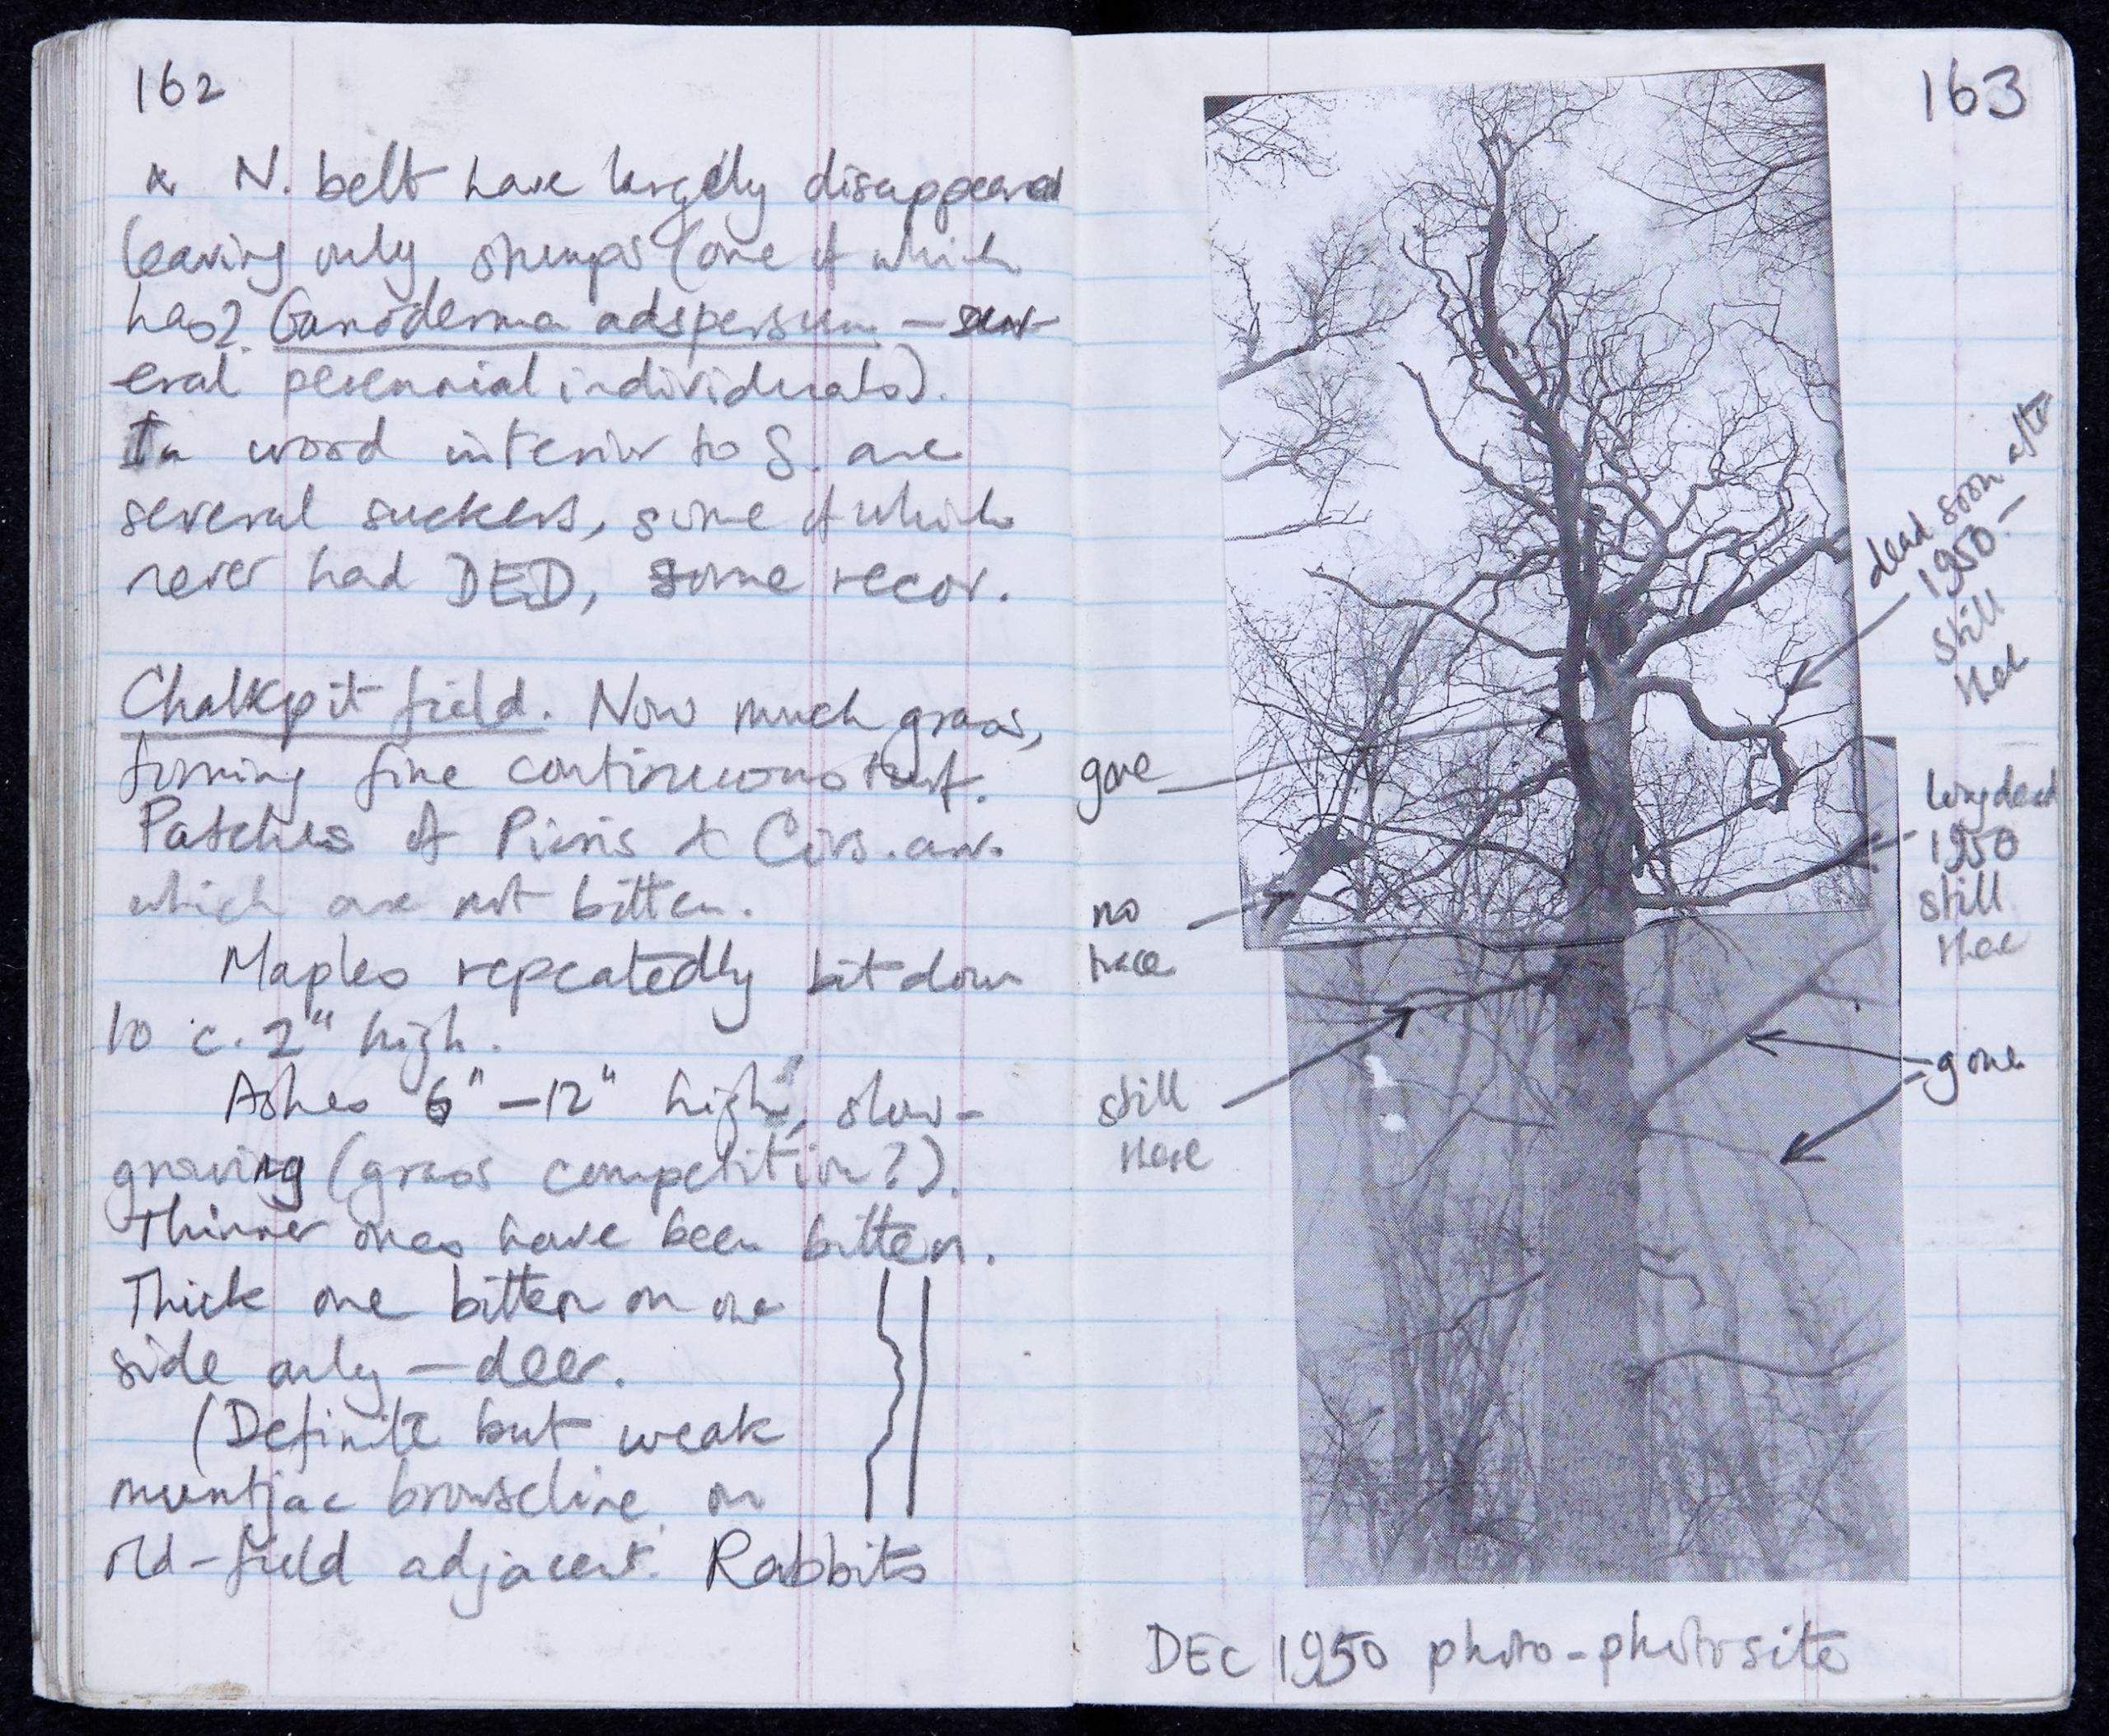 162
N. belt have largely disappeared
leaving only stumps (one of which
has? Ganoderma adspersum — sev-
eral perennial individuals).
In wood interior to S. are
several suckers, some of which
never had DED, some recov.
Chalkpit field. Now much grass,
forming fine continuous turf.
Patches of Picris & Cirs. arv.
which are not bitten.
Maples repeatedly bit down
to c. 2" high.
Ashes 6" – 12" high, slow-
growing (grass competition?).
Thinner ones have been bitten.
Thick one bitten on one
side only — deer.
(Definite but weak
muntjac browseline on
old-field adjacent. Rabbits
163
dead soon after
1950 –
still
there
gone
long dead
1950
still
there
no
trace
gone
still
there
DEC 1950 photo - photosite